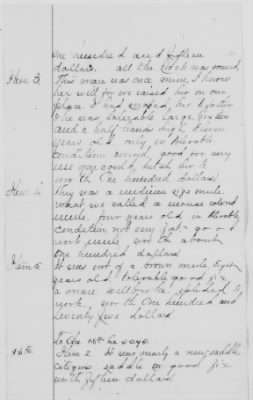 One hundred and fifteen
dollars. all the stock was sound
Item 3, This mare was once mine, I know
her well for we raised her on our
place I had engaged her
she was tolerable large, fifteen
and a half hands high Eleven
years old. only in tolerable
condition sound, good for any
use you could hitch her to
worth One hundred dollars
Item 4. They was a medium size mule.
what we called a mouse colored
mule, four years old in tolerable
condition not very fat - good
work mule, worth about
One hundred dollars
Item 5. It was sort of a brown mule Eight
years old tolerably good fix
a mare, well broke, splendid to
work, worth One hundred and
seventy five dollars
To the 16th he says
16th Item 2. It was nearly a new saddle
Citizens saddle in good fix.
worth fifteen dollars